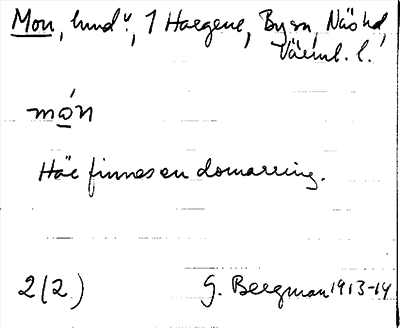 Mon, "lund", 1 Haegene, By sn, Näs hd,
Värml. l.
mó̲n
Här finnes en domarring.
2(2)
G. Bergman 1913-14